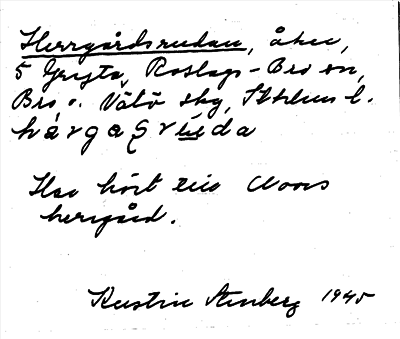 Herrgårdsrudan, åker,
5 Gryta, Roslags-Bro sn,
Bro o. Vätö skg, Sthlms l.
hárgașrùda
Har hört till Noors
herrgård.
Kerstin Stenberg 1945